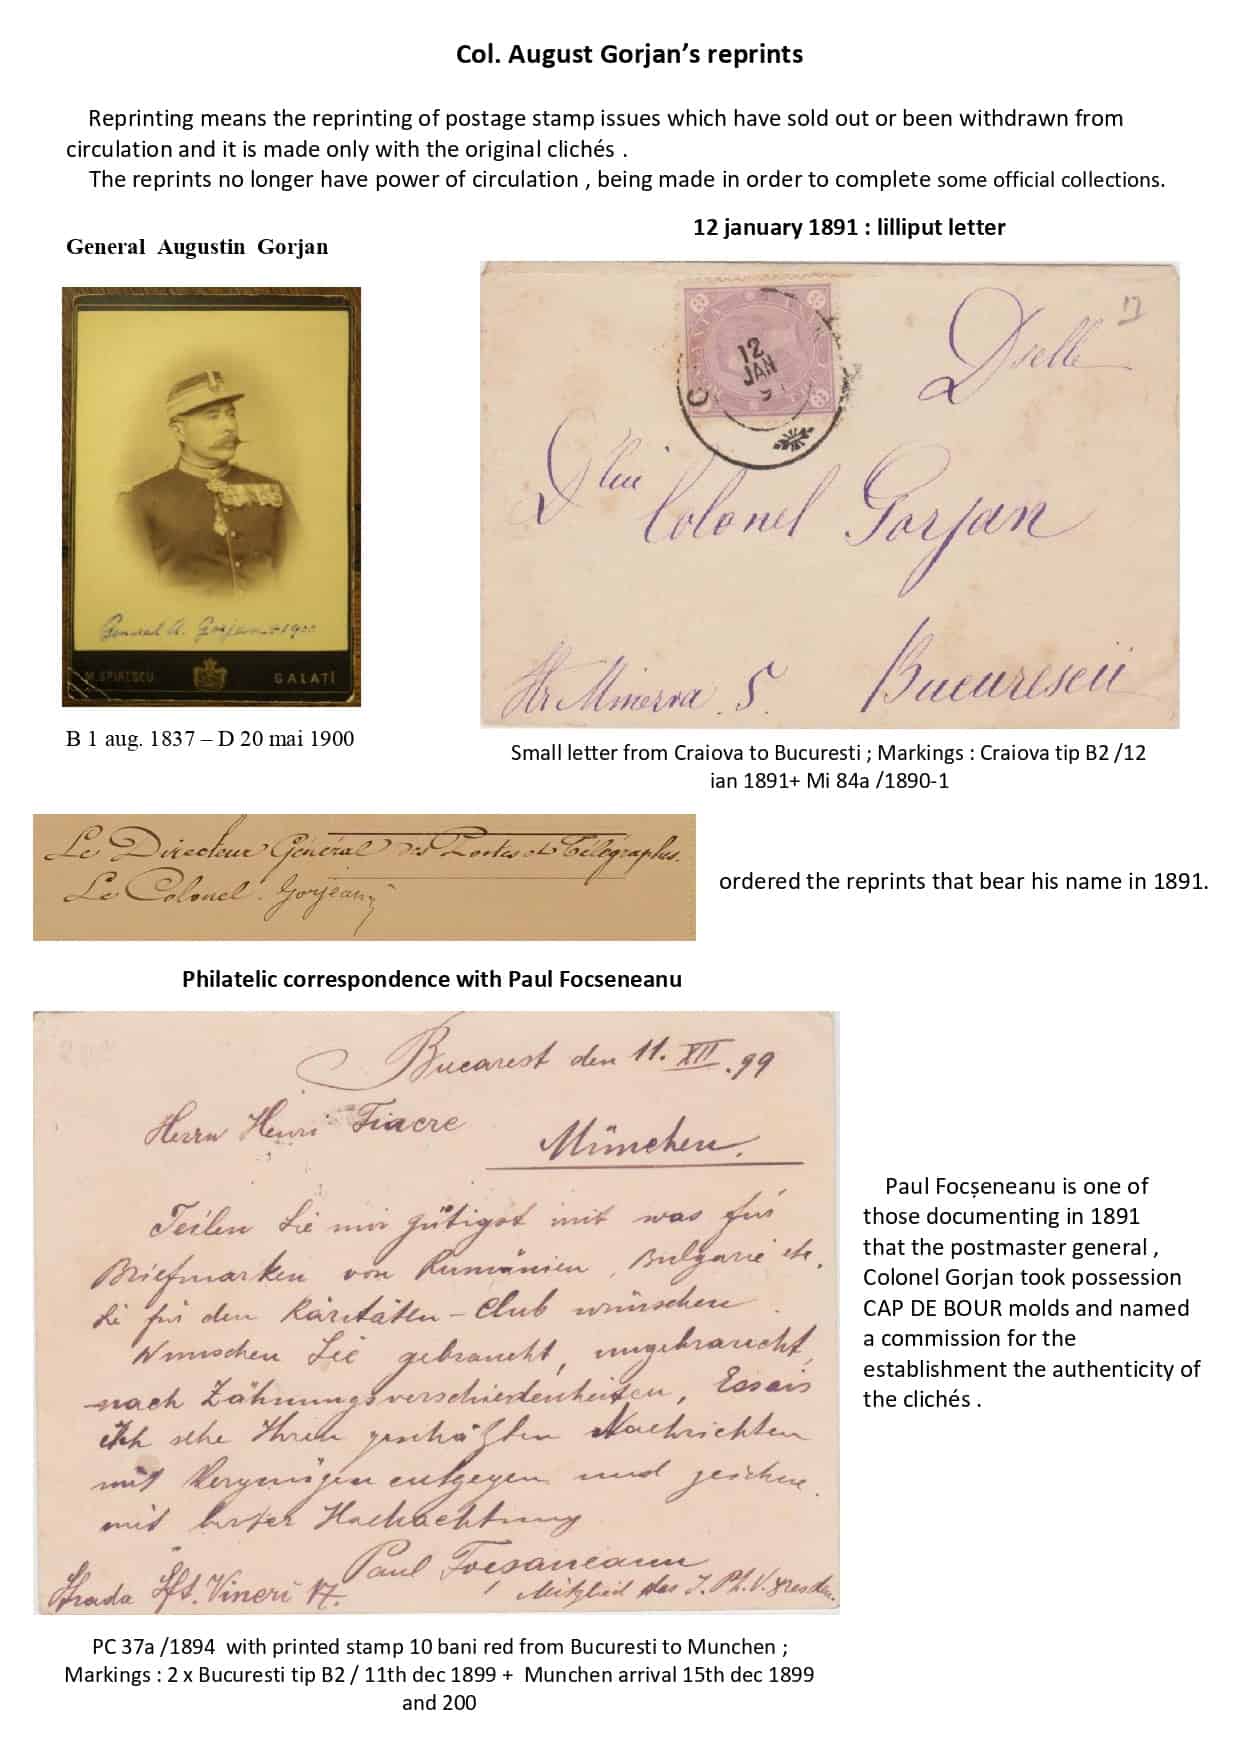 Col. August Gorjan’s reprints
Reprinting means the reprinting of postage stamp issues which have sold out or been withdrawn from
circulation and it is made only with the original clichés .
The reprints no longer have power of circulation , being made in order to complete some official collections.
General Augustin Gorjan
General A. Gorjan 1900
M. SPIRESCU GALATI
B 1 aug. 1837 – D 20 mai 1900
12 january 1891 : lilliput letter
12
JAN
9
Dselle
Dlui Colonel Gorjan
Str Minerva 5. Bucurescii
Small letter from Craiova to Bucuresti ; Markings : Craiova tip B2 /12
ian 1891+ Mi 84a /1890-1
Le Directeur Général des Postes et Télégraphes.
Le Colonel Gorjean
ordered the reprints that bear his name in 1891.
Philatelic correspondence with Paul Focseneanu
Bucarest den 11. XII .99
Herrn Henri Fiacre
München.
Teilen Sie mir gütigst mit was für
Briefmarken von Rumänien, Bulgarie etc.
Sie für den Raritäten-Club wünschen
Wünschen Sie gebraucht, ungebraucht,
nach Zähnungsverschiedenheiten, Essais
Ich sehe Ihren geschätzten Nachrichten
mit Vergnügen entgegen und zeichne
mit bester Hochachtung
Paul Focsaneanu
Strada Sft. Vineri 17. Mitglied des I. Ph. V. Dresden.
Paul Focșeneanu is one of
those documenting in 1891
that the postmaster general ,
Colonel Gorjan took possession
CAP DE BOUR molds and named
a commission for the
establishment the authenticity of
the clichés .
PC 37a /1894 with printed stamp 10 bani red from Bucuresti to Munchen ;
Markings : 2 x Bucuresti tip B2 / 11th dec 1899 + Munchen arrival 15th dec 1899
and 200